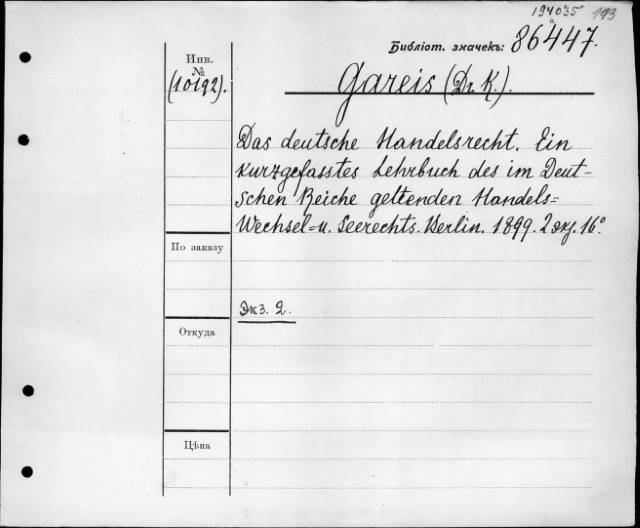 194035 193
и
Библіот. значекъ: 86447.
Инв.
№
(10192).
Gareis (Dr. K.).
Das deutsche Handelsrecht. Ein
kurzgefasstes Lehrbuch des im Deut-
schen Reiche geltenden Handels=
Wechsel= u. Seerechts. Berlin. 1899. 2 экз. 16°
По заказу
Экз. 2.
Откуда
Цѣна